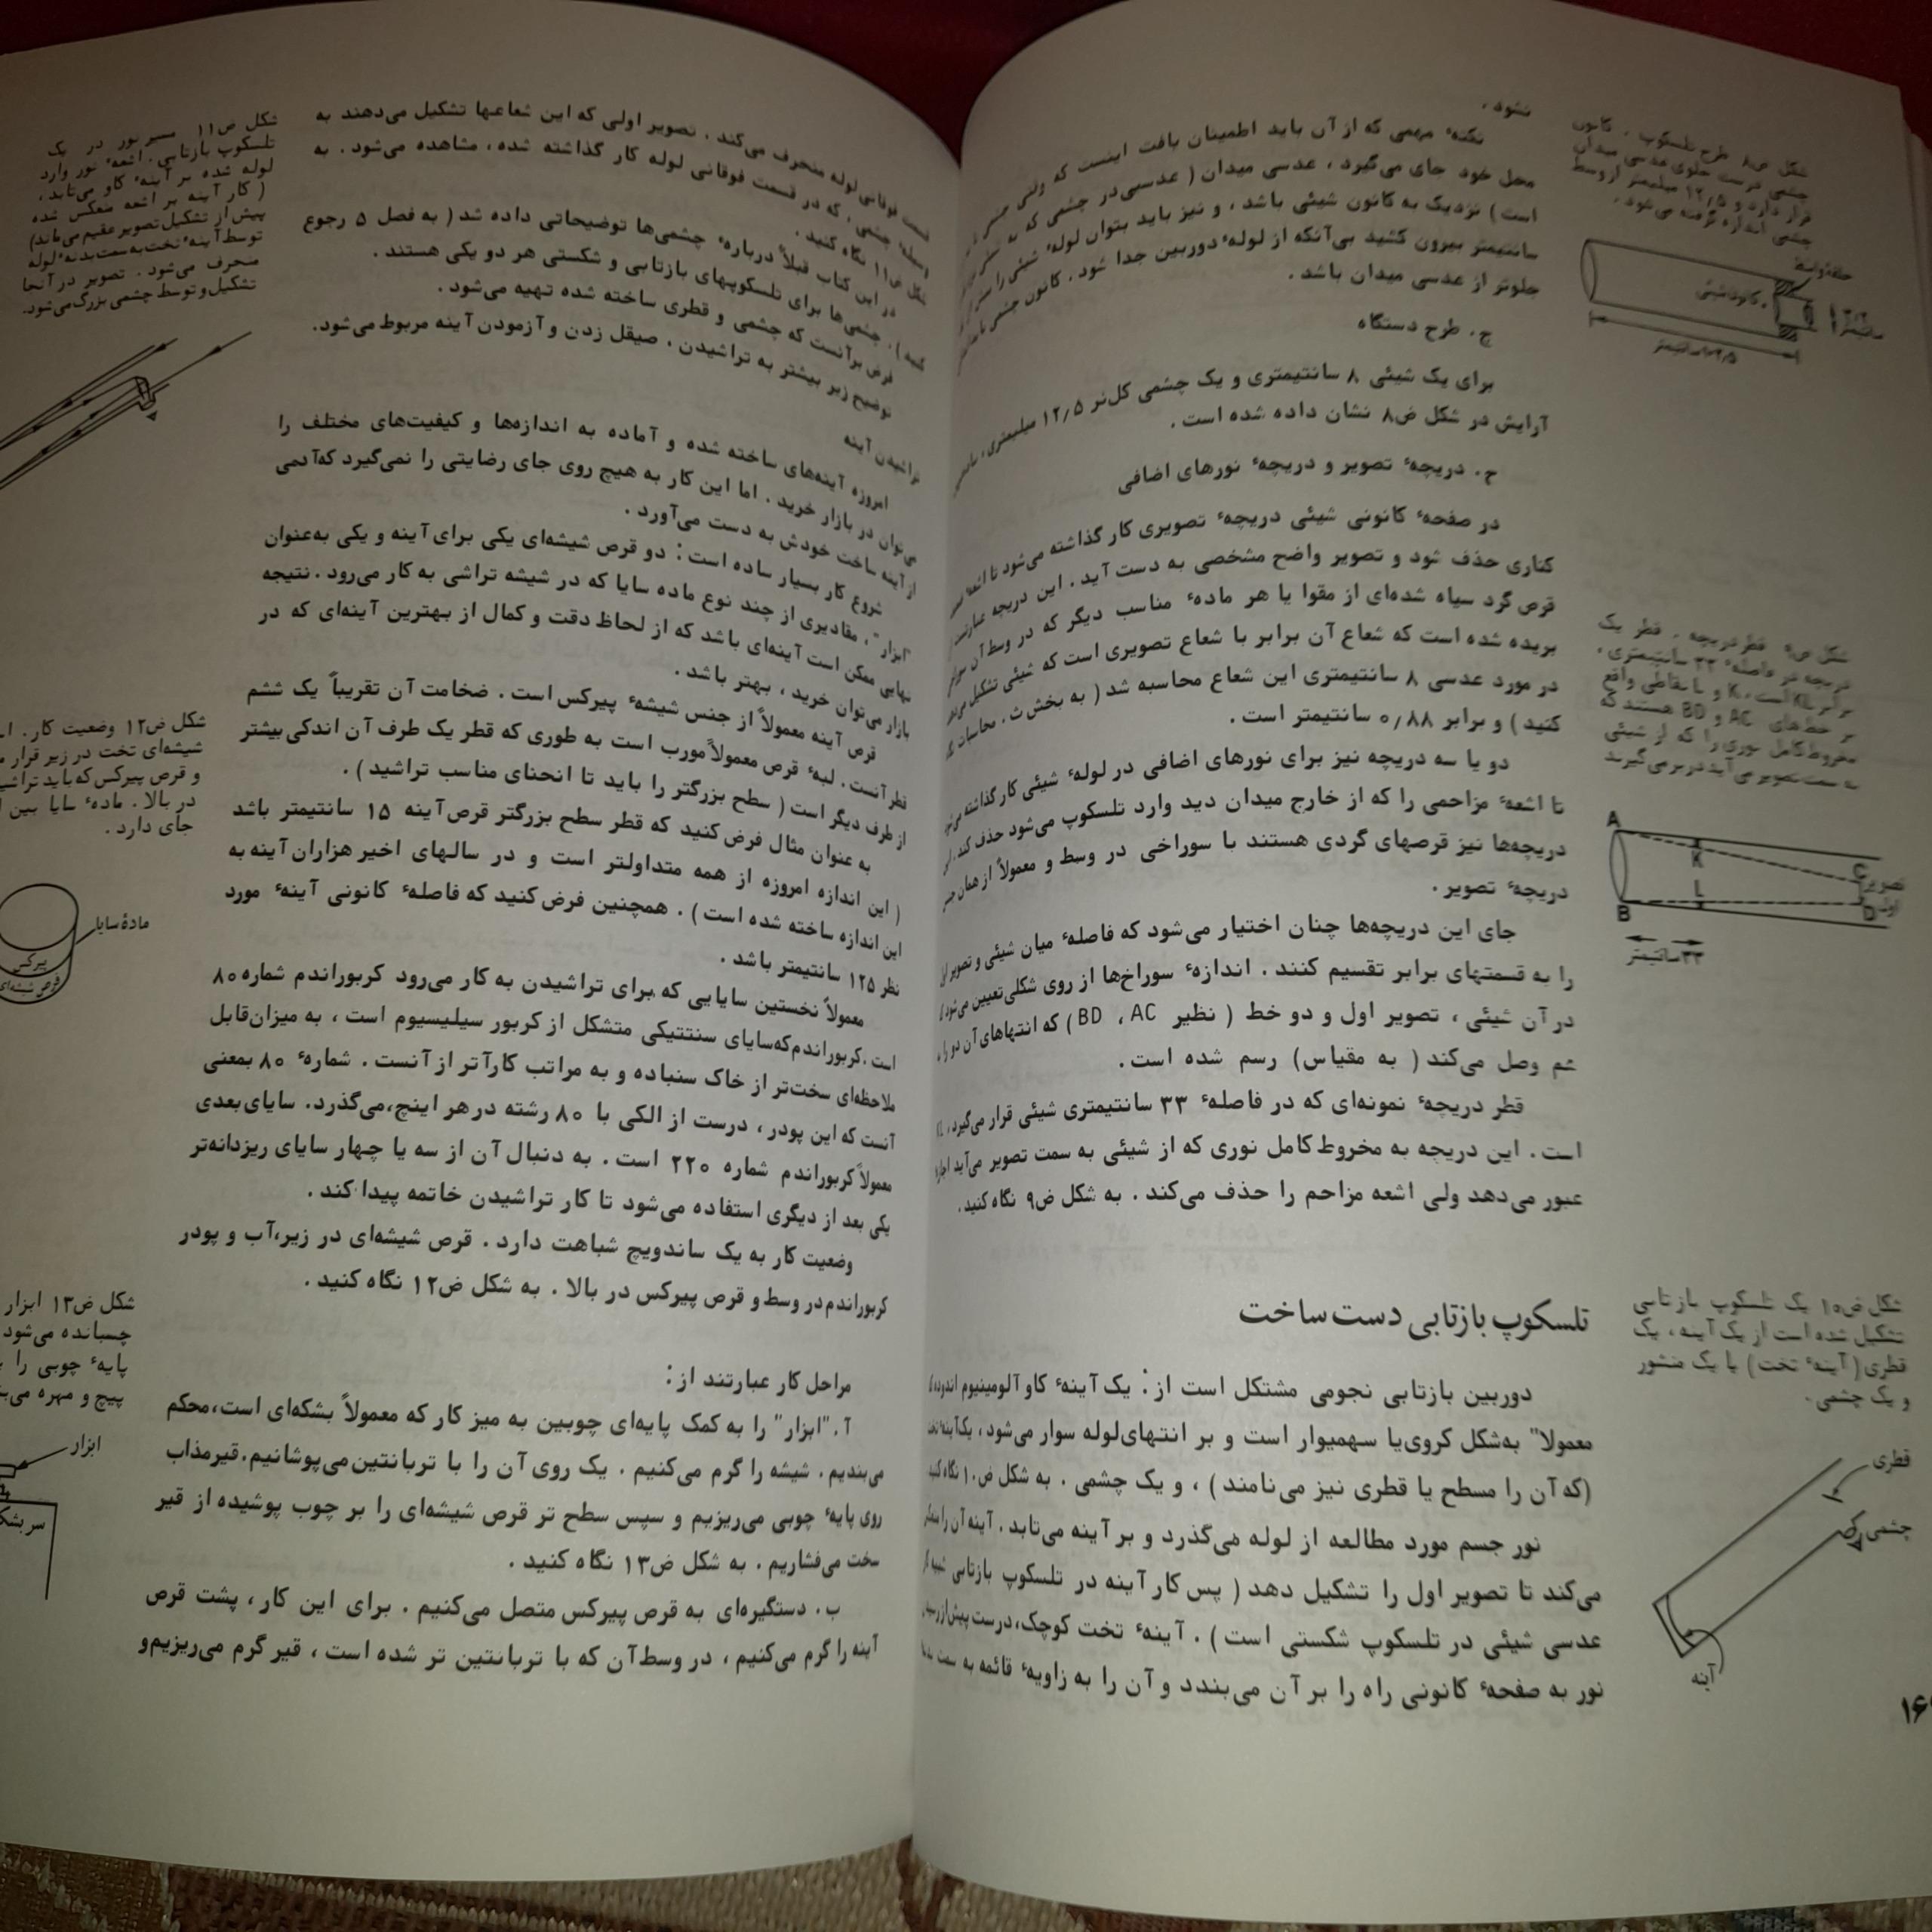 نشود.
نکته مهمی که از آن باید اطمینان یافت اینست که وقتی چشمی در
محل خود جای می‌گیرد، عدسی میدان (عدسی در چشمی که به شیئی
است) نزدیک به کانون شیئی باشد، و نیز باید بتوان لوله شیئی را
سانتیمتر بیرون کشید بی‌آنکه از لوله دوربین جدا شود. کانون چشمی
جلوتر از عدسی میدان باشد.
چ. طرح دستگاه
برای یک شیئی ۸ سانتیمتری و یک چشمی کلنر ۱۲/۵ میلیمتری،
آرایش در شکل ض۸ نشان داده شده است.
ح. دریچه تصویر و دریچه نورهای اضافی
در صفحه کانونی شیئی دریچه تصویری کار گذاشته می‌شود تا اشعه
کناری حذف شود و تصویر واضح مشخصی به دست آید. این دریچه عبارتست
قرص گرد سیاه شده‌ای از مقوا یا هر ماده مناسب دیگر که در وسط آن
بریده شده است که شعاع آن برابر با شعاع تصویری است که شیئی تشکیل می‌دهد
در مورد عدسی ۸ سانتیمتری این شعاع محاسبه شد (به بخش ث. محاسبات
کنید) و برابر ۰/۸۸ سانتیمتر است.
دو یا سه دریچه نیز برای نورهای اضافی در لوله شیئی کار گذاشته
تا اشعه مزاحمی را که از خارج میدان دید وارد تلسکوپ می‌شود حذف کند.
دریچه‌ها نیز قرصهای گردی هستند با سوراخی در وسط و معمولاً از همان جنس
دریچه تصویر.
جای این دریچه‌ها چنان اختیار می‌شود که فاصله میان شیئی و تصویر اول
را به قسمتهای برابر تقسیم کنند. اندازه سوراخ‌ها از روی شکلی تعیین می‌شود که
در آن شیئی، تصویر اول و دو خط (نظیر BD ، AC) که انتهاهای آن دو را
هم وصل می‌کند (به مقیاس) رسم شده است.
قطر دریچه نمونه‌ای که در فاصله ۳۳ سانتیمتری شیئی قرار می‌گیرد، KL
است. این دریچه به مخروط کامل نوری که از شیئی به سمت تصویر می‌آید اجازه
عبور می‌دهد ولی اشعه مزاحم را حذف می‌کند. به شکل ض۹ نگاه کنید.
تلسکوپ بازتابی دست ساخت
دوربین بازتابی نجومی مشتکل است از: یک آینه کاو آلومینیوم اندوده که
معمولا" به‌شکل کروی یا سهمیوار است و بر انتهای لوله سوار می‌شود، یک آینه تخت
(که آن را مسطح یا قطری نیز می‌نامند)، و یک چشمی. به شکل ض۱۰ نگاه کنید
نور جسم مورد مطالعه از لوله می‌گذرد و بر آینه می‌تابد. آینه آن را
می‌کند تا تصویر اول را تشکیل دهد (پس کار آینه در تلسکوپ بازتابی شبیه کار
عدسی شیئی در تلسکوپ شکستی است). آینه تخت کوچک، درست پیش از رسیدن
نور به صفحه کانونی راه را بر آن می‌بندد و آن را به زاویه قائمه به سمت
شکل ض۸ طرح تلسکوپ. کانون
چشمی درست جلوی عدسی میدان
قرار دارد و ۱۲/۵ میلیمتر از وسط
چشمی اندازه گرفته می‌شود.
حلقه واسط
کانون شیئی
سانتیمتر
شکل ض۹ قطر دریچه. قطر یک
دریچه در فاصله ۳۳ سانتیمتری،
برابر KL است، K و L نقاطی واقع
بر خطهای AC و BD هستند که
مخروط کامل نوری را که از شیئی
به سمت تصویر می‌آید در بر می‌گیرند
A
K
C
تصویر
اول
L
B
D
۳۳ سانتیمتر
شکل ض۱۰ یک تلسکوپ بازتابی
تشکیل شده است از یک آینه، یک
قطری (آینه تخت) یا یک منشور
و یک چشمی.
قطری
چشمی
آینه
قسمت فوقانی لوله منحرف می‌کند. تصویر اولی که این شعاعها تشکیل می‌دهند به
وسیله چشمی، که در قسمت فوقانی لوله کار گذاشته شده، مشاهده می‌شود. به
شکل ض۱۱ نگاه کنید.
در این کتاب قبلاً درباره چشمی‌ها توضیحاتی داده شد (به فصل ۵ رجوع
کنید). چشمی‌ها برای تلسکوپهای بازتابی و شکستی هر دو یکی هستند.
فرض بر آنست که چشمی و قطری ساخته شده تهیه می‌شود.
توضیح زیر بیشتر به تراشیدن، صیقل زدن و آزمودن آینه مربوط می‌شود.
تراشیدن آینه
امروزه آینه‌های ساخته شده و آماده به اندازه‌ها و کیفیت‌های مختلف را
می‌توان در بازار خرید. اما این کار به هیچ روی جای رضایتی را نمی‌گیرد که آدمی
از آینه ساخت خودش به دست می‌آورد.
شروع کار بسیار ساده است: دو قرص شیشه‌ای یکی برای آینه و یکی به‌عنوان
"ابزار"، مقادیری از چند نوع ماده سایا که در شیشه تراشی به کار می‌رود. نتیجه
نهایی ممکن است آینه‌ای باشد که از لحاظ دقت و کمال از بهترین آینه‌ای که در
بازار می‌توان خرید، بهتر باشد.
قرص آینه معمولاً از جنس شیشه پیرکس است. ضخامت آن تقریباً یک ششم
قطر آنست. لبه قرص معمولاً مورب است به طوری که قطر یک طرف آن اندکی بیشتر
از طرف دیگر است (سطح بزرگتر را باید تا انحنای مناسب تراشید).
به عنوان مثال فرض کنید که قطر سطح بزرگتر قرص آینه ۱۵ سانتیمتر باشد
(این اندازه امروزه از همه متداولتر است و در سالهای اخیر هزاران آینه به
این اندازه ساخته شده است). همچنین فرض کنید که فاصله کانونی آینه مورد
نظر ۱۲۵ سانتیمتر باشد.
معمولاً نخستین سایایی که برای تراشیدن به کار می‌رود کربوراندم شماره ۸۰
است. کربوراندم که سایای سنتتیکی متشکل از کربور سیلیسیوم است، به میزان قابل
ملاحظه‌ای سخت‌تر از خاک سنباده و به مراتب کارآتر از آنست. شماره ۸۰ بمعنی
آنست که این پودر، درست از الکی با ۸۰ رشته در هر اینچ، می‌گذرد. سایای بعدی
معمولاً کربوراندم شماره ۲۲۰ است. به دنبال آن از سه یا چهار سایای ریزدانه‌تر
یکی بعد از دیگری استفاده می‌شود تا کار تراشیدن خاتمه پیدا کند.
وضعیت کار به یک ساندویچ شباهت دارد. قرص شیشه‌ای در زیر، آب و پودر
کربوراندم در وسط و قرص پیرکس در بالا. به شکل ض۱۲ نگاه کنید.
مراحل کار عبارتند از:
آ. "ابزار" را به کمک پایه‌ای چوبین به میز کار که معمولاً بشکه‌ای است، محکم
می‌بندیم. شیشه را گرم می‌کنیم. یک روی آن را با تربانتین می‌پوشانیم. قیر مذاب
روی پایه چوبی می‌ریزیم و سپس سطح تر قرص شیشه‌ای را بر چوب پوشیده از قیر
سخت می‌فشاریم. به شکل ض۱۳ نگاه کنید.
ب. دستگیره‌ای به قرص پیرکس متصل می‌کنیم. برای این کار، پشت قرص
آینه را گرم می‌کنیم، در وسط آن که با تربانتین تر شده است، قیر گرم می‌ریزیم و
شکل ض۱۱ مسیر نور در یک
تلسکوپ بازتابی. اشعه نور وارد
لوله شده بر آینه کاو می‌تابد،
(کار آینه بر اشعه منعکس شده
پیش از تشکیل تصویر عقیم می‌ماند)
توسط آینه تخت به سمت بدنه لوله
منحرف می‌شود. تصویر در آنجا
تشکیل و توسط چشمی بزرگ می‌شود.
شکل ض۱۲ وضعیت کار.
شیشه‌ای تخت در زیر قرار
و قرص پیرکس که باید تراشید
در بالا. ماده سایا بین
جای دارد.
ماده سایا
پیرکس
قرص شیشه‌ای
شکل ض۱۳ ابزار
چسبانده می‌شود
پایه چوبی را
پیچ و مهره
ابزار
سر بشکه